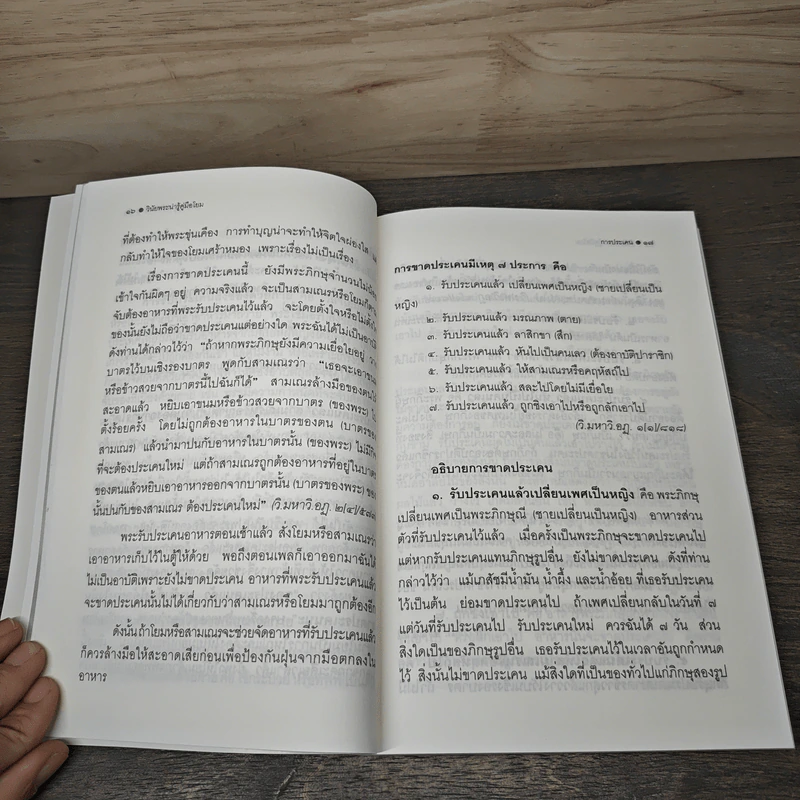 ๑๖ ● วินัยพระน่ารู้คู่มือโยม
ที่ต้องทำให้พระขุ่นเคือง การทำบุญน่าจะทำให้จิตใจผ่องใส
กลับทำให้ใจของโยมเศร้าหมอง เพราะเรื่องไม่เป็นเรื่อง
เรื่องการขาดประเคนนี้ ยังมีพระภิกษุจำนวนไม่น้อย
เข้าใจกันผิดๆ อยู่ ความจริงแล้ว จะเป็นสามเณรหรือโยมก็ตาม
จับต้องอาหารที่พระรับประเคนไว้แล้ว จะโดยตั้งใจหรือไม่ตั้งใจ
ของนั้นยังไม่ถือว่าขาดประเคนแต่อย่างใด พระฉันได้ไม่เป็นอาบัติ
ดังท่านได้กล่าวไว้ว่า “ถ้าหากพระภิกษุยังมีความเยื่อใยอยู่ วาง
บาตรไว้บนเชิงรองบาตร พูดกับสามเณรว่า “เธอจะเอาขนม
หรือข้าวสวยจากบาตรนี้ไปฉันก็ได้” สามเณรล้างมือของตน
สะอาดแล้ว หยิบเอาขนมหรือข้าวสวยจากบาตร (ของพระ)
ตั้งร้อยครั้ง โดยไม่ถูกต้องอาหารในบาตรของตน (บาตรของ
สามเณร) แล้วนำมาปนกับอาหารในบาตรนั้น (ของพระ) ไม่มีกิจ
ที่จะต้องประเคนใหม่ แต่ถ้าสามเณรถูกต้องอาหารที่อยู่ในบาตร
ของตนแล้วหยิบเอาอาหารออกจากบาตรนั้น (บาตรของพระ)
นั้นปนกับของสามเณร ต้องประเคนใหม่” (วิ.มหาวิ.อฏ. ๒/๔/
พระรับประเคนอาหารตอนเช้าแล้ว สั่งโยมหรือสามเณรว่า
เอาอาหารเก็บไว้ในตู้ให้ด้วย พอถึงตอนเพลก็เอาออกมาฉันได้
ไม่เป็นอาบัติเพราะยังไม่ขาดประเคน อาหารที่พระรับประเคนแล้ว
จะขาดประเคนนั้นไม่ได้เกี่ยวกับว่าสามเณรหรือโยมมาถูกต้องอีก
ดังนั้นถ้าโยมหรือสามเณรจะช่วยจัดอาหารที่รับประเคนแล้ว
ก็ควรล้างมือให้สะอาดเสียก่อนเพื่อป้องกันฝุ่นจากมือตกลงใน
อาหาร
การประเคน ● ๑๗
การขาดประเคนมีเหตุ ๗ ประการ คือ
๑. รับประเคนแล้ว เปลี่ยนเพศเป็นหญิง (ชายเปลี่ยนเป็น
หญิง)
๒. รับประเคนแล้ว มรณภาพ (ตาย)
๓. รับประเคนแล้ว ลาสิกขา (สึก)
๔. รับประเคนแล้ว หันไปเป็นคนเลว (ต้องอาบัติปาราชิก)
๕. รับประเคนแล้ว ให้สามเณรหรือคฤหัสถ์ไป
๖. รับประเคนแล้ว สละไปโดยไม่มีเยื่อใย
๗. รับประเคนแล้ว ถูกชิงเอาไปหรือถูกลักเอาไป
(วิ.มหาวิ.อฏ. ๑/๑/๘๑๘)
อธิบายการขาดประเคน
๑. รับประเคนแล้วเปลี่ยนเพศเป็นหญิง คือ พระภิกษุ
เปลี่ยนเพศเป็นพระภิกษุณี (ชายเปลี่ยนเป็นหญิง) อาหารส่วน
ตัวที่รับประเคนไว้แล้ว เมื่อครั้งเป็นพระภิกษุจะขาดประเคนไป
แต่หากรับประเคนแทนภิกษุรูปอื่น ยังไม่ขาดประเคน ดังที่ท่าน
กล่าวไว้ว่า แม้เภสัชมีน้ำมัน น้ำผึ้ง และน้ำอ้อย ที่เธอรับประเคน
ไว้เป็นต้น ย่อมขาดประเคนไป ถ้าเพศเปลี่ยนกลับในวันที่ ๗
แต่วันที่รับประเคนไป รับประเคนใหม่ ควรฉันได้ ๗ วัน ส่วน
สิ่งใดเป็นของภิกษุรูปอื่น เธอรับประเคนไว้ในเวลาอันถูกกำหนด
ไว้ สิ่งนั้นไม่ขาดประเคน แม้สิ่งใดที่เป็นของทั่วไปแก่ภิกษุสองรูป